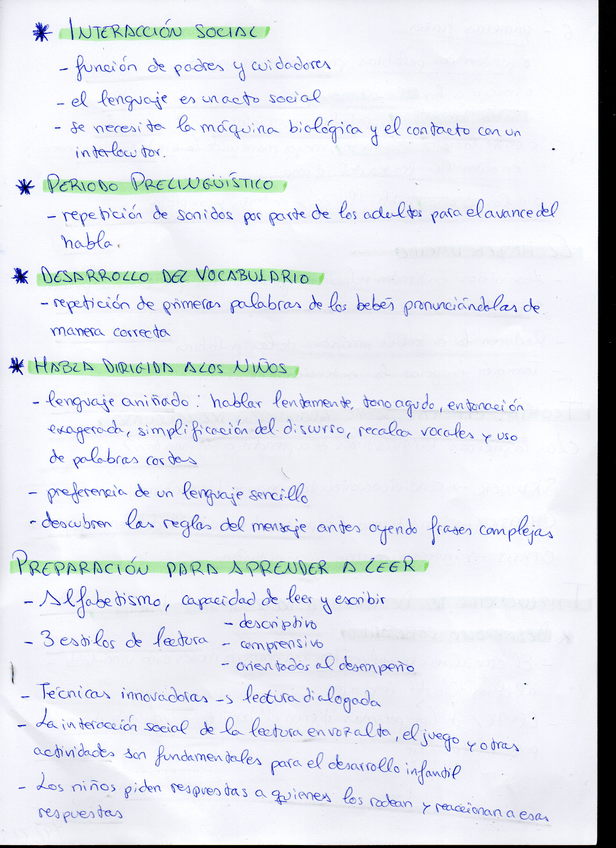 * INTERACCIÓN SOCIAL
- función de padres y cuidadores
- el lenguaje es un acto social
- se necesita la máquina biológica y el contacto con un
interlocutor.
* PERIODO PRELINGÜÍSTICO
- repetición de sonidos por parte de los adultos para el avance del
habla.
* DESARROLLO DEL VOCABULARIO
- repetición de primeras palabras de los bebés pronunciándolas de
manera correcta
* HABLA DIRIGIDA A LOS NIÑOS
- lenguaje aniñado: hablar lentamente, tono agudo, entonación
exagerada, simplificación del discurso, recalca vocales y uso
de palabras cortas
- preferencia de un lenguaje sencillo
- descubren las reglas del mensaje antes oyendo frases complejas
PREPARACIÓN PARA APRENDER A LEER
- Alfabetismo, capacidad de leer y escribir
- 3 estilos de lectura - descriptivo
- comprensivo
- orientados al desempeño
- Técnicas innovadoras -> lectura dialogada
- La interacción social de la lectura en voz alta, el juego y otras
actividades son fundamentales para el desarrollo infantil
- Los niños piden respuestas a quienes los rodean y reaccionan a esas
respuestas